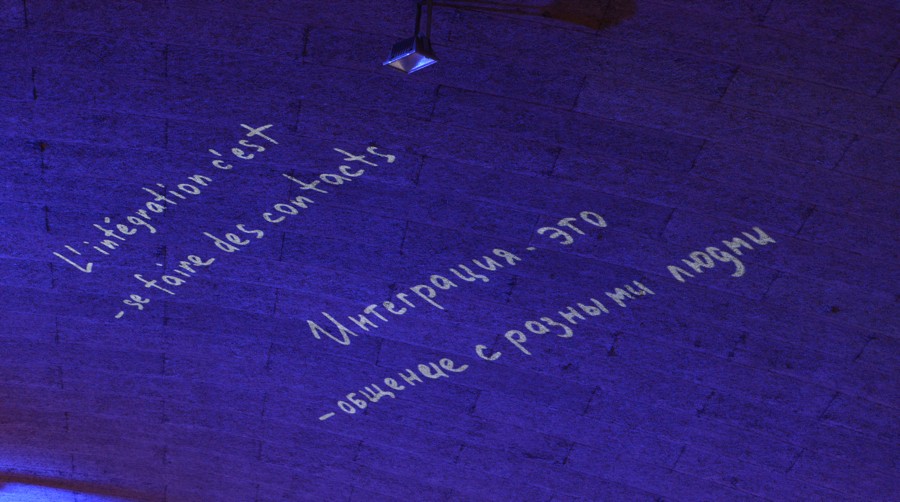 L'intégration c'est
- se faire des contacts
Интеграция - это
- общение с разными людми